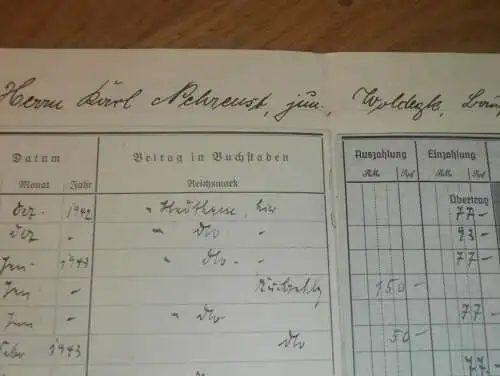 Herrn Karl Nehrenst, jun., Woldegk,
Datum Beitrag in Buchstaben Auszahlung Einzahlung
Monat Jahr Reichsmark RM Rpf RM Rpf
Übertrag
Dez - 1942 " Stadtkasse, hier 77 -
Dez - " dto - 93 -
Jan - 1943 " dto - - 77 -
Jan - 150 -
Jan - " dto 77 -
Febr 1943 dto 50 -
77